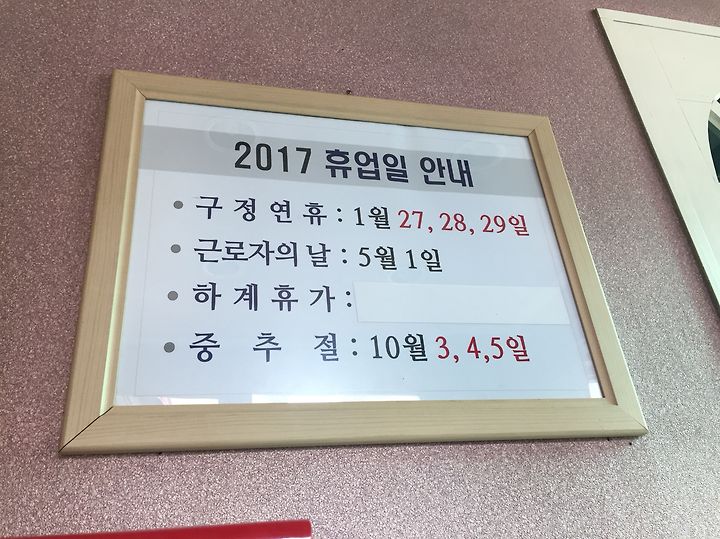 2017 휴업일 안내
• 구 정 연 휴 : 1월 27, 28, 29일
• 근로자의 날 : 5월 1일
• 하 계 휴 가 :
• 중 추 절 : 10월 3, 4,5일